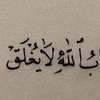 بُ اللهِ لَا يُغْلَقْ